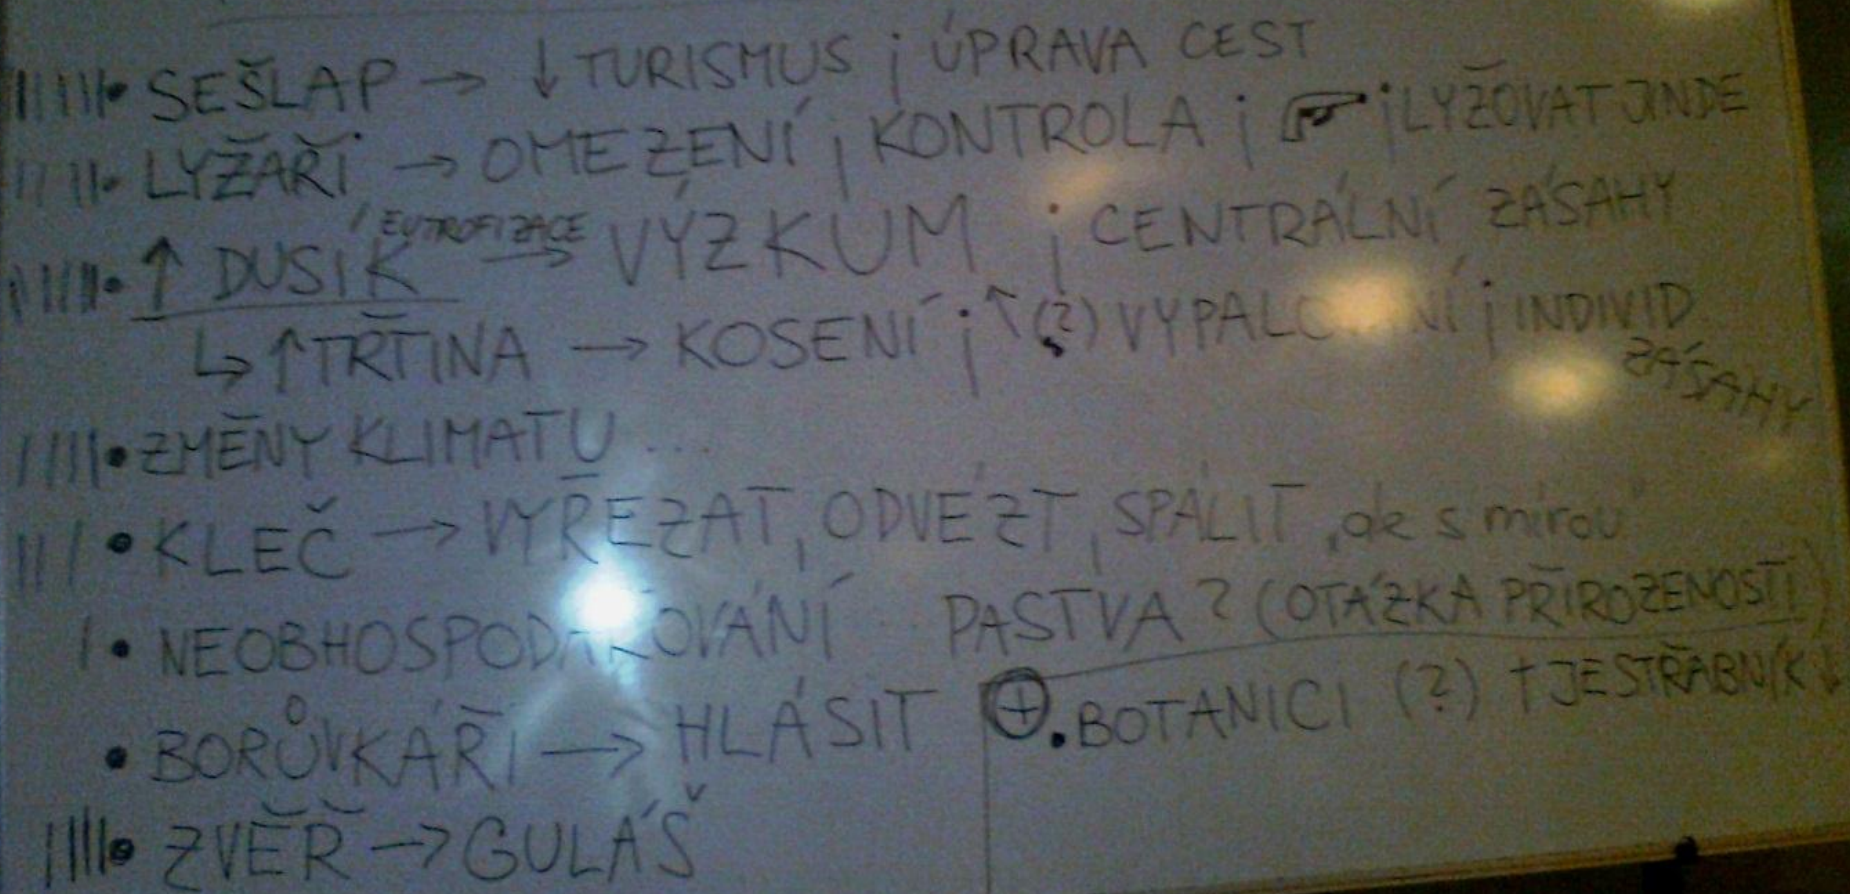 ||||| • SEŠLAP → ↓ TURISMUS ; ÚPRAVA CEST
||||| • LYŽAŘI → OMEZENÍ ; KONTROLA ; ☞ ; LYŽOVAT JINDE
||||| • ↑ DUSÍK / EUTROFIZACE → VÝZKUM ; CENTRÁLNÍ ZÁSAHY
↳ ↑ TŘTINA → KOSENÍ ; ↑ (?) VYPALOVÁNÍ ; INDIVID. ZÁSAHY
||||| • ZMĚNY KLIMATU ...
|||| • KLEČ → VYŘEZAT, ODVÉZT, SPÁLIT „ale s mírou"
| • NEOBHOSPODAŘOVÁNÍ PASTVA ? (OTÁZKA PŘIROZENOSTI)
• BORŮVKÁŘI → HLÁSIT
⊕ • BOTANICI (?) † JESTŘÁBNÍK ↓
||||| • ZVĚŘ → GULÁŠ